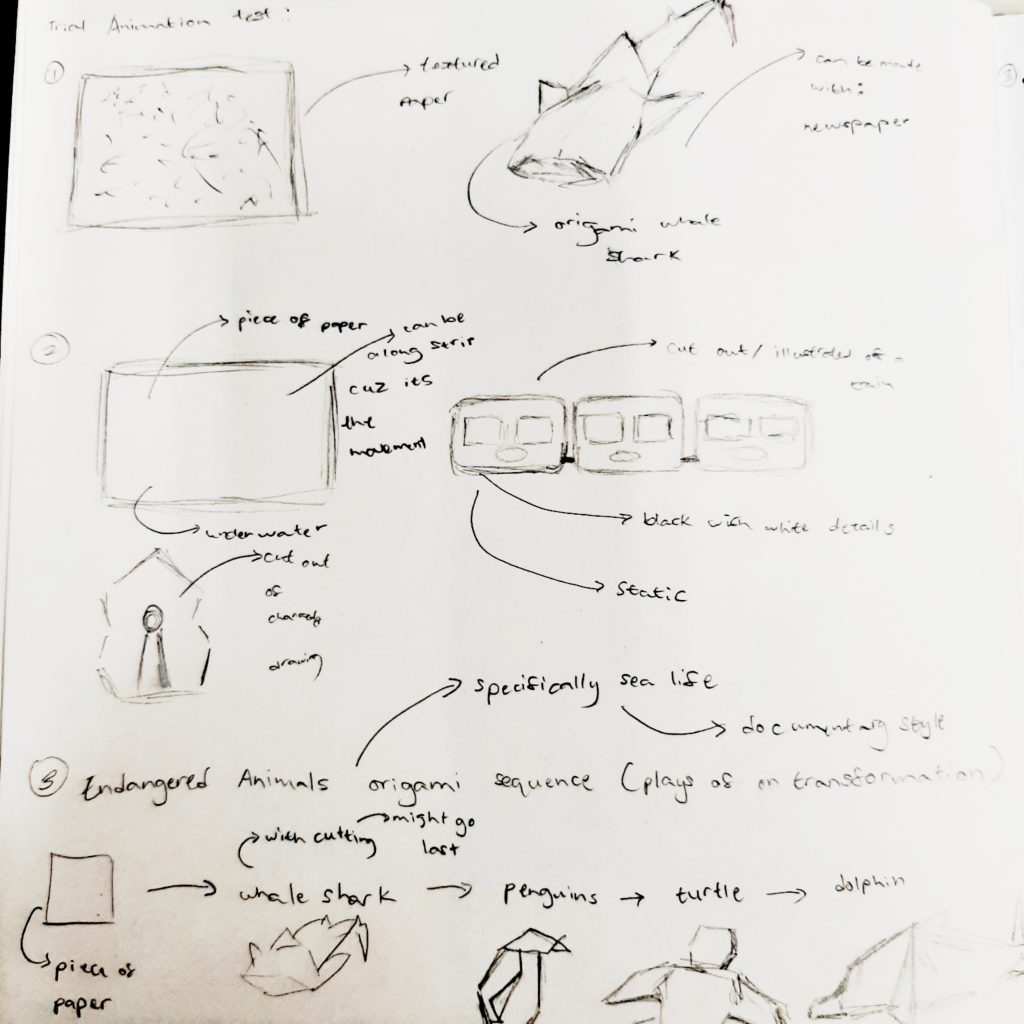 Trial Animation test:
1
textured
paper
can be made
with:
newspaper
origami whale
shark
3
2
piece of paper
can be
along strip
cuz its
the
movement
cut out / illustrated of a
train
underwater
black with white details
static
cut out
of
drawing
specifically sea life
documentary style
3 Endangered Animals origami sequence (plays of on transformation)
with cutting
might go
last
whale shark
penguins
turtle
dolphin
piece of
paper